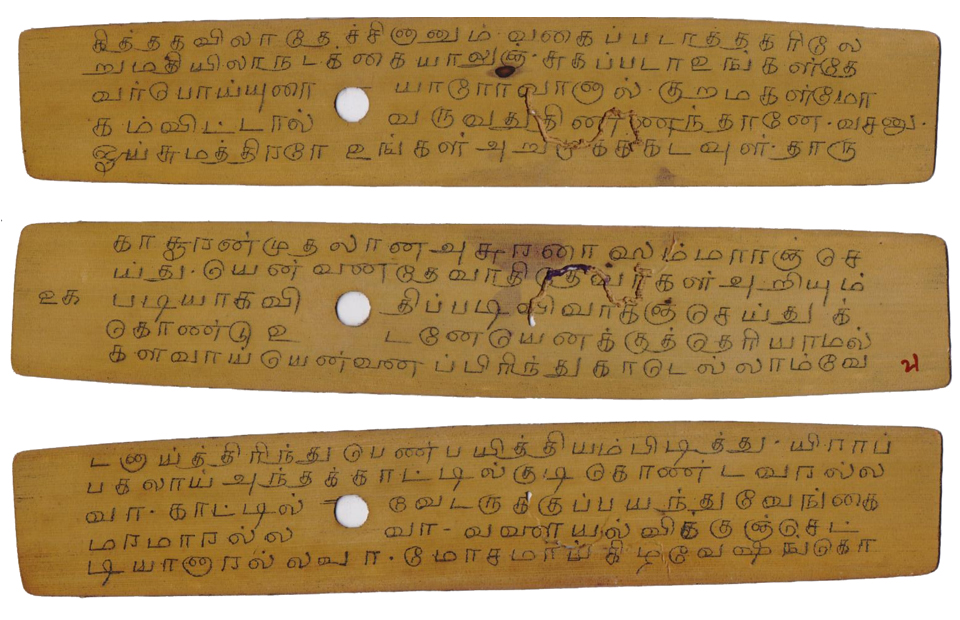 கித்தகவிலாதேச்சினனும் வகைப்படாததகரிலே
றுமதியிலாநடக்கையாலுஞ் சுகப்படாஉங்கள்தே
வர்பொய்யுரை யாரோவானால் குறமகள்மோ
கம்விட்டால் வருவதுதிண்ணந்தானே வசனு
ஓய்சுமத்திரரே உங்கள் அறு கடவுள் தாரு
காசூரண்முதலான அசுரரை யெல்ம்மாரஞ் செ
ய்து யென்வணதேவாதி தேவர்கள் அறியும்
உக படியாகவி திப்படி விவாகஞ்செய்து க்
கொண்டு உ டனேயெனக்குத்தெரியாமல்
களவாய்யென்வண ப்பிரிந்துகாடெல்லாம்வே
டனாய்த்திரிந்து பெண்பயித்தியம்பிடித்து யிராப்
பகலாய்அந்தக்காட்டில்குடிகொண்டவரல்ல
வா காட்டில் வேடருக்குப்பயந்துவேங்கை
மரமாரல்ல வா வளையல்விக்குஞ்செட்
டியானாரல்லவா மோசமாய் கிழவேஷங்கொ